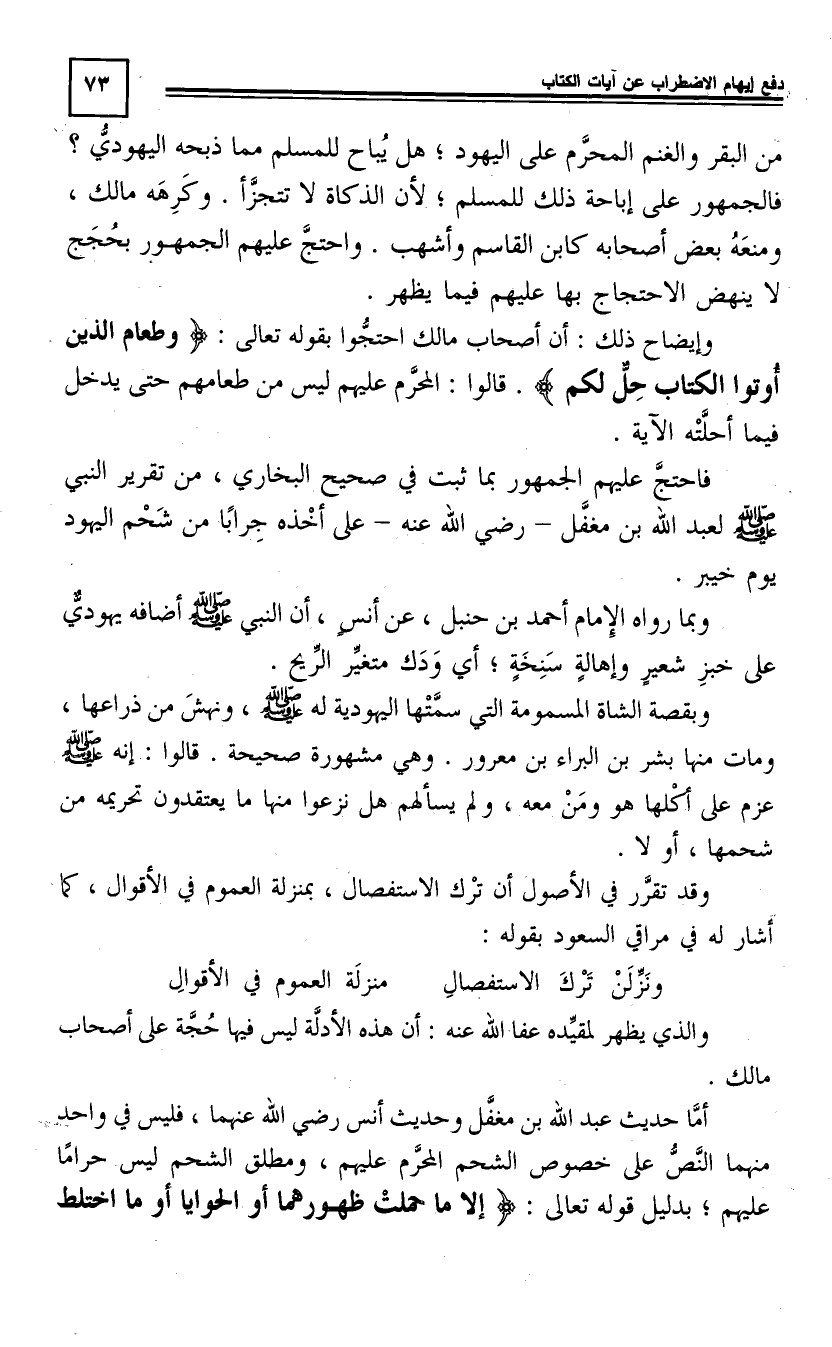 دفع إيهام الاضطراب عن آيات الكتاب
٧٣
من البقر والغنم المحرَّم على اليهود ؛ هل يُباح للمسلم مما ذبحه اليهوديُّ ؟
فالجمهور على إباحة ذلك للمسلم ؛ لأن الذكاة لا تتجزَّأ . وكَرِهَه مالك ،
ومنعَهُ بعض أصحابه كابن القاسم وأشهب . واحتجَّ عليهم الجمهـور بحُجَج
لا ينهض الاحتجاج بها عليهم فيما يظهر .
وإيضاح ذلك : أن أصحاب مالك احتجُّوا بقوله تعالى : ﴿ وطعام الذين
أُوتوا الكتاب حِلٌّ لكم ﴾ . قالوا : المحرَّم عليهم ليس من طعامهم حتى يدخل
فيما أحلَّتْه الآية .
فاحتجَّ عليهم الجمهور بما ثبت في صحيح البخاري ، من تقرير النبي
ﷺ لعبد الله بن مغفَّل – رضي الله عنه – على أخْذه جِرابًا من شَحْم اليهود
يوم خيبر .
وبما رواه الإِمام أحمد بن حنبل ، عن أنسٍ ، أن النبي ﷺ أضافه يهوديٌّ
على خبزِ شعيرٍ وإهالةٍ سَنِخَةٍ ؛ أي وَدَك متغيِّر الرِّيح .
وبقصة الشاة المسمومة التي سمَّتْها اليهودية له ﷺ ، ونهشَ من ذراعها ،
ومات منها بشر بن البراء بن معرور . وهي مشهورة صحيحة . قالوا : إنه ﷺ
عزم على أكْلها هو ومَنْ معه ، ولم يسألهم هل نزعوا منها ما يعتقدون تحريمه من
شحمها ، أو لا .
وقد تقرَّر في الأصول أن ترْك الاستفصال ، بمنزلة العموم في الأقوال ، كما
أشار له في مراقي السعود بقوله :
ونَزِّلَنْ تَرْكَ الاستفصالِ منزلَة العموم في الأقوالِ
والذي يظهر لمقيِّده عفا الله عنه : أن هذه الأدلَّة ليس فيها حُجَّة على أصحاب
مالك .
أمَّا حديث عبد الله بن مغفَّل وحديث أنس رضي الله عنهما ، فليس في واحد
منهما النَّصُّ على خصوص الشحم المحرَّم عليهم ، ومطلق الشحم ليس حرامًا
عليهم ؛ بدليل قوله تعالى : ﴿ إلا ما حملتْ ظهـورهما أو الحوايا أو ما اختلط